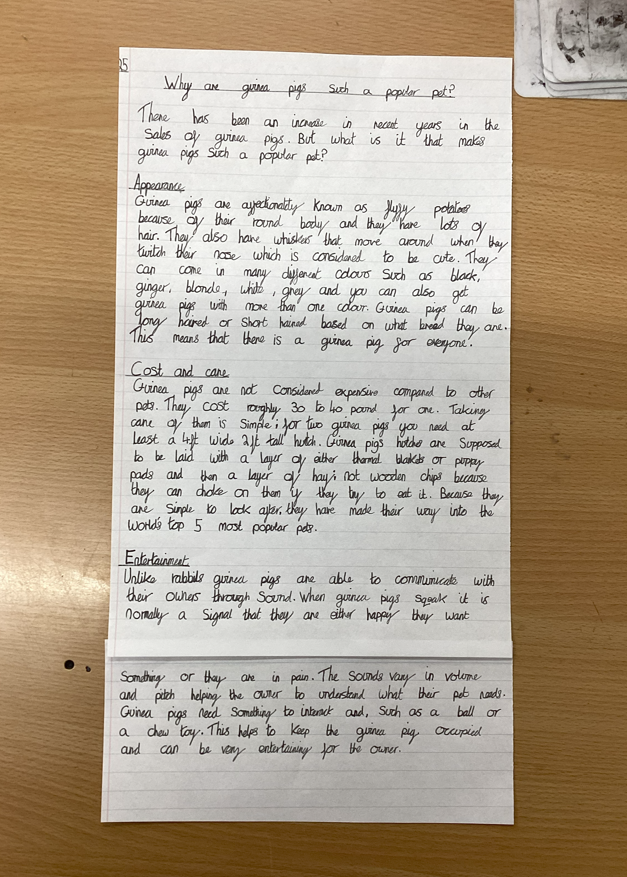 25
Why are guinea pigs such a popular pet?
There has been an increase in recent years in the
sales of guinea pigs. But what is it that makes
guinea pigs such a popular pet?
Appearance
Guinea pigs are affectionality known as fluffy potatoes
because of their round body and they have lots of
hair. They also have whiskers that move around when they
twitch their nose which is considered to be cute. They
can come in many different colours such as black,
ginger, blonde, white, grey and you can also get
guinea pigs with more than one colour. Guinea pigs can be
long haired or short haired based on what breed they are.
This means that there is a guinea pig for everyone.
Cost and care
Guinea pigs are not considered expensive compared to other
pets. They cost roughly 30 to 40 pound for one. Taking
care of them is simple; for two guinea pigs you need at
least a 4ft wide 2ft tall hutch. Guinea pigs hutches are supposed
to be laid with a layer of either thermal blankets or puppy
pads and then a layer of hay; not wooden chips because
they can choke on them if they try to eat it. Because they
are simple to look after, they have made their way into the
world's top 5 most popular pets.
Entertainment
Unlike rabbits guinea pigs are able to communicate with
their owners through sound. When guinea pigs squeak it is
normally a signal that they are either happy they want
something or they are in pain. The sounds vary in volume
and pitch helping the owner to understand what their pet needs.
Guinea pigs need something to interact and, such as a ball or
a chew toy. This helps to keep the guinea pig occupied
and can be very entertaining for the owner.